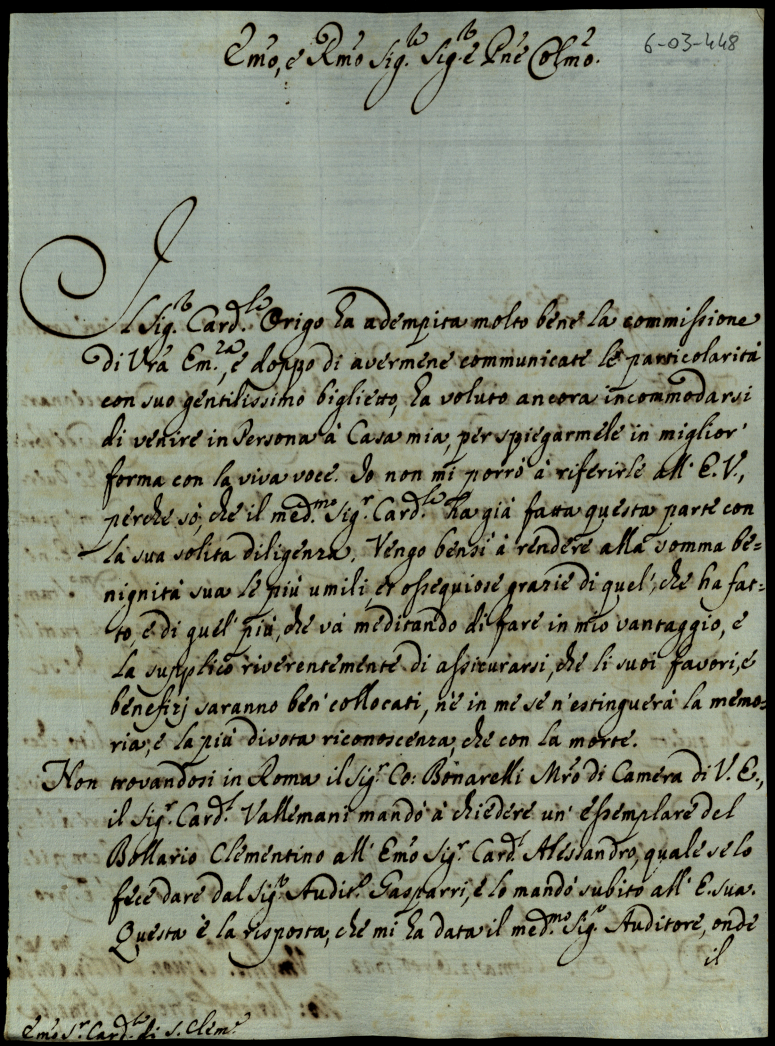 6-03-448
Em̃o, e Rm̃o Sig.r Sig.r e Pñe Colm̃o.
Il Sig.r Card.le Origo ha adempita molto bene la commissione
di Vr̃a Em.za, e doppo di avermene communicate le particolarità
con suo gentilissimo biglietto, ha voluto ancora incommodarsi
di venire in Persona à Casa mia, per spiegarmele in miglior'
forma con la viva voce. Io non mi porrò à riferirle all' E.V.,
perche sò, che il med.mo Sig.r Card.le ha già fatta questa parte con
la sua solita diligenza, Vengo bensì à rendere alla somma be=
nignità sua le più umili, et ossequiose grazie di quel', che ha fat=
to, e di quel' più, che và meditando di fare in mio vantaggio, e
la supplico riverentemente di assicurarsi, che li suoi favori, e
benefizj saranno ben' collocati, nè in me se n'estinguerà la memo=
ria, e la più divota riconoscenza, che con la morte.
Non trovandosi in Roma il Sig.r Co: Bonarelli Mr̃o di Camera di V.E.,
il Sig.r Card.l Vallemani mandò à chiedere un' essemplare del
Bollario Clementino all' Em̃o Sig.r Card.l Alessandro, quale se lo
fece dare dal Sig.r Audit.r Gasparri, e lo mandò subito all' E. sua.
Questa è la risposta, che mi ha data il med.mo Sig.r Auditore, onde
il
Em̃o S.r Card.le di S. Clem.e